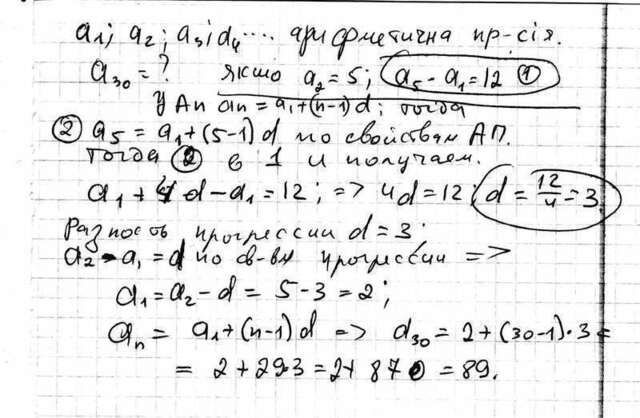 a₁; a₂; a₃; a₄.... арифметична пр-сія.
a₃₀ = ? якшо a₂ = 5; a₅ - a₁ = 12 ①
У Ап aₙ = a₁ + (n-1)d; тогда
② a₅ = a₁ + (5-1)d по свойствам АП.
тогда ② в 1 и получаем.
a₁ + 4d - a₁ = 12; => 4d = 12; d = 12/4 = 3
Разность прогрессии d = 3.
a₂ - a₁ = d по св-вы прогрессии =>
a₁ = a₂ - d = 5 - 3 = 2;
aₙ = a₁ + (n-1)d => a₃₀ = 2 + (30-1)·3 =
= 2 + 29·3 = 2 + 87 = 89.